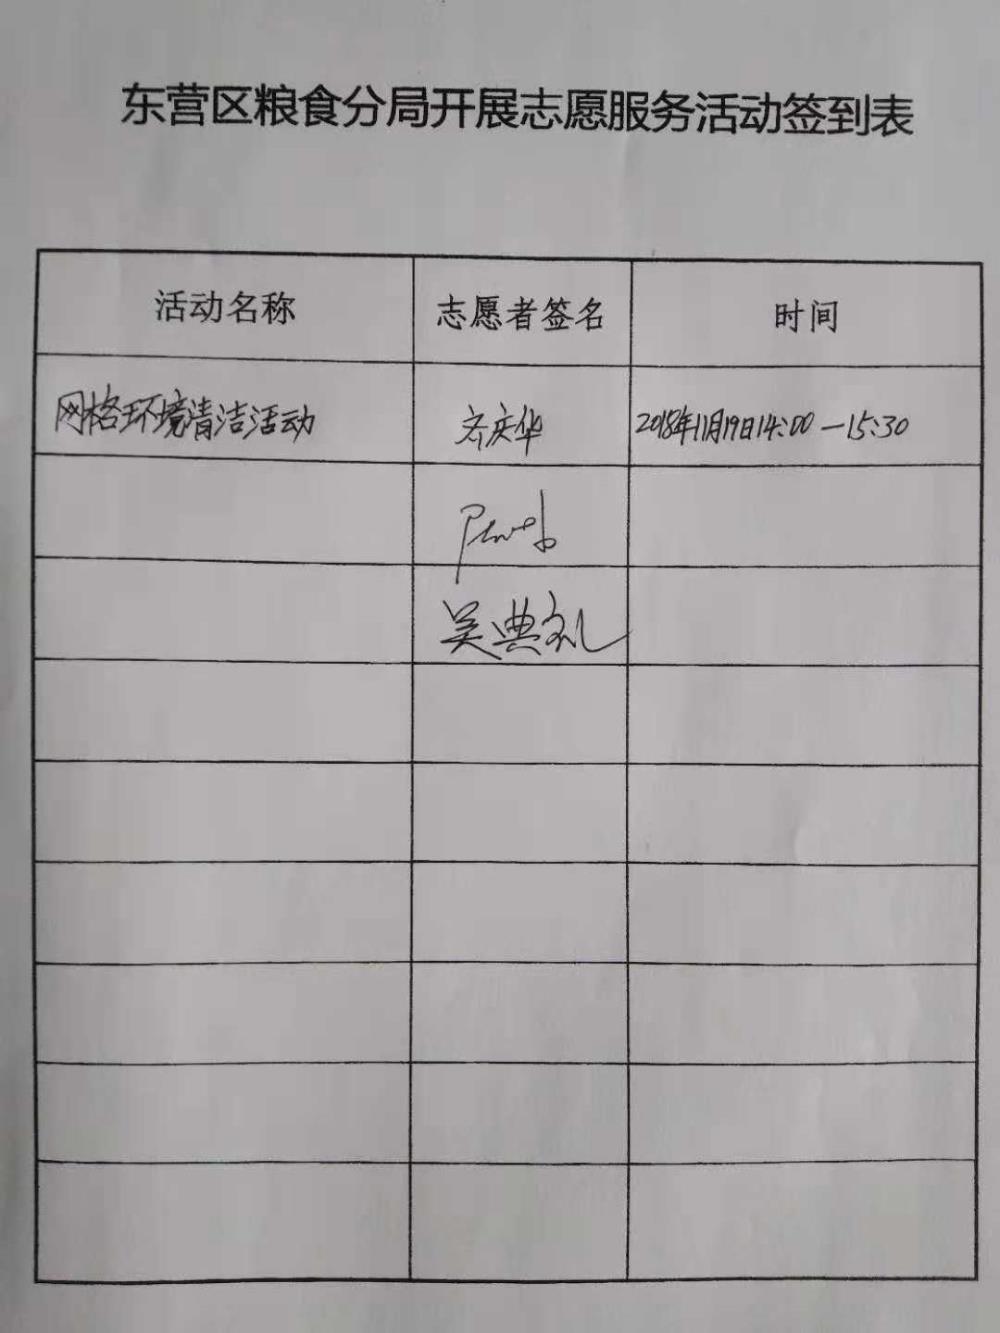 东营区粮食分局开展志愿服务活动签到表
活动名称 志愿者签名 时间
网格环境清洁活动 齐庆华 2018年11月19日14:00—15:30
吴典礼